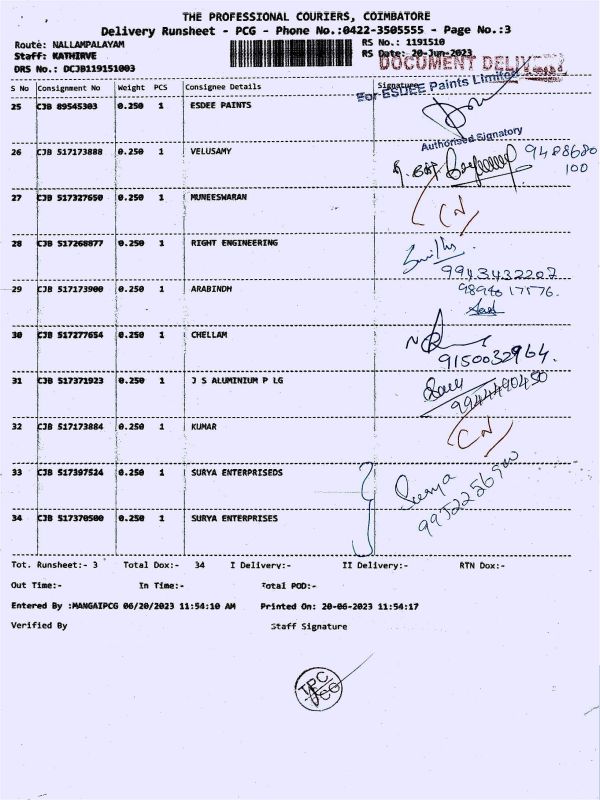 THE PROFESSIONAL COURIERS, COIMBATORE
Delivery Runsheet - PCG - Phone No.:0422-3505555 - Page No.:3
Route: NALLAMPALAYAM RS No.: 1191510
Staff: KATHIRVE RS Date: 20-Jun-2023
DRS No.: DCJB119151003 DOCUMENT DELIVERY
S No Consignment No Weight PCS Consignee Details Signature
For ESDEE Paints Limited
25 CJB 89545303 0.250 1 ESDEE PAINTS
Authorised Signatory
26 CJB 517173888 0.250 1 VELUSAMY 9488680
100
27 CJB 517327650 0.250 1 MUNEESWARAN
CN
28 CJB 517268877 0.250 1 RIGHT ENGINEERING
9943432207
29 CJB 517173900 0.250 1 ARABINDH 9894617576.
30 CJB 517277654 0.250 1 CHELLAM
9150032964.
31 CJB 517371923 0.250 1 J S ALUMINIUM P LG
9944490450
32 CJB 517173884 0.250 1 KUMAR CN
33 CJB 517397524 0.250 1 SURYA ENTERPRISEDS
Surya
34 CJB 517370500 0.250 1 SURYA ENTERPRISES
Tot. Runsheet:- 3 Total Dox:- 34 I Delivery:- II Delivery:- RTN Dox:-
Out Time:- In Time:- Total POD:-
Entered By :MANGAIPCG 06/20/2023 11:54:10 AM Printed On: 20-06-2023 11:54:17
Verified By Staff Signature